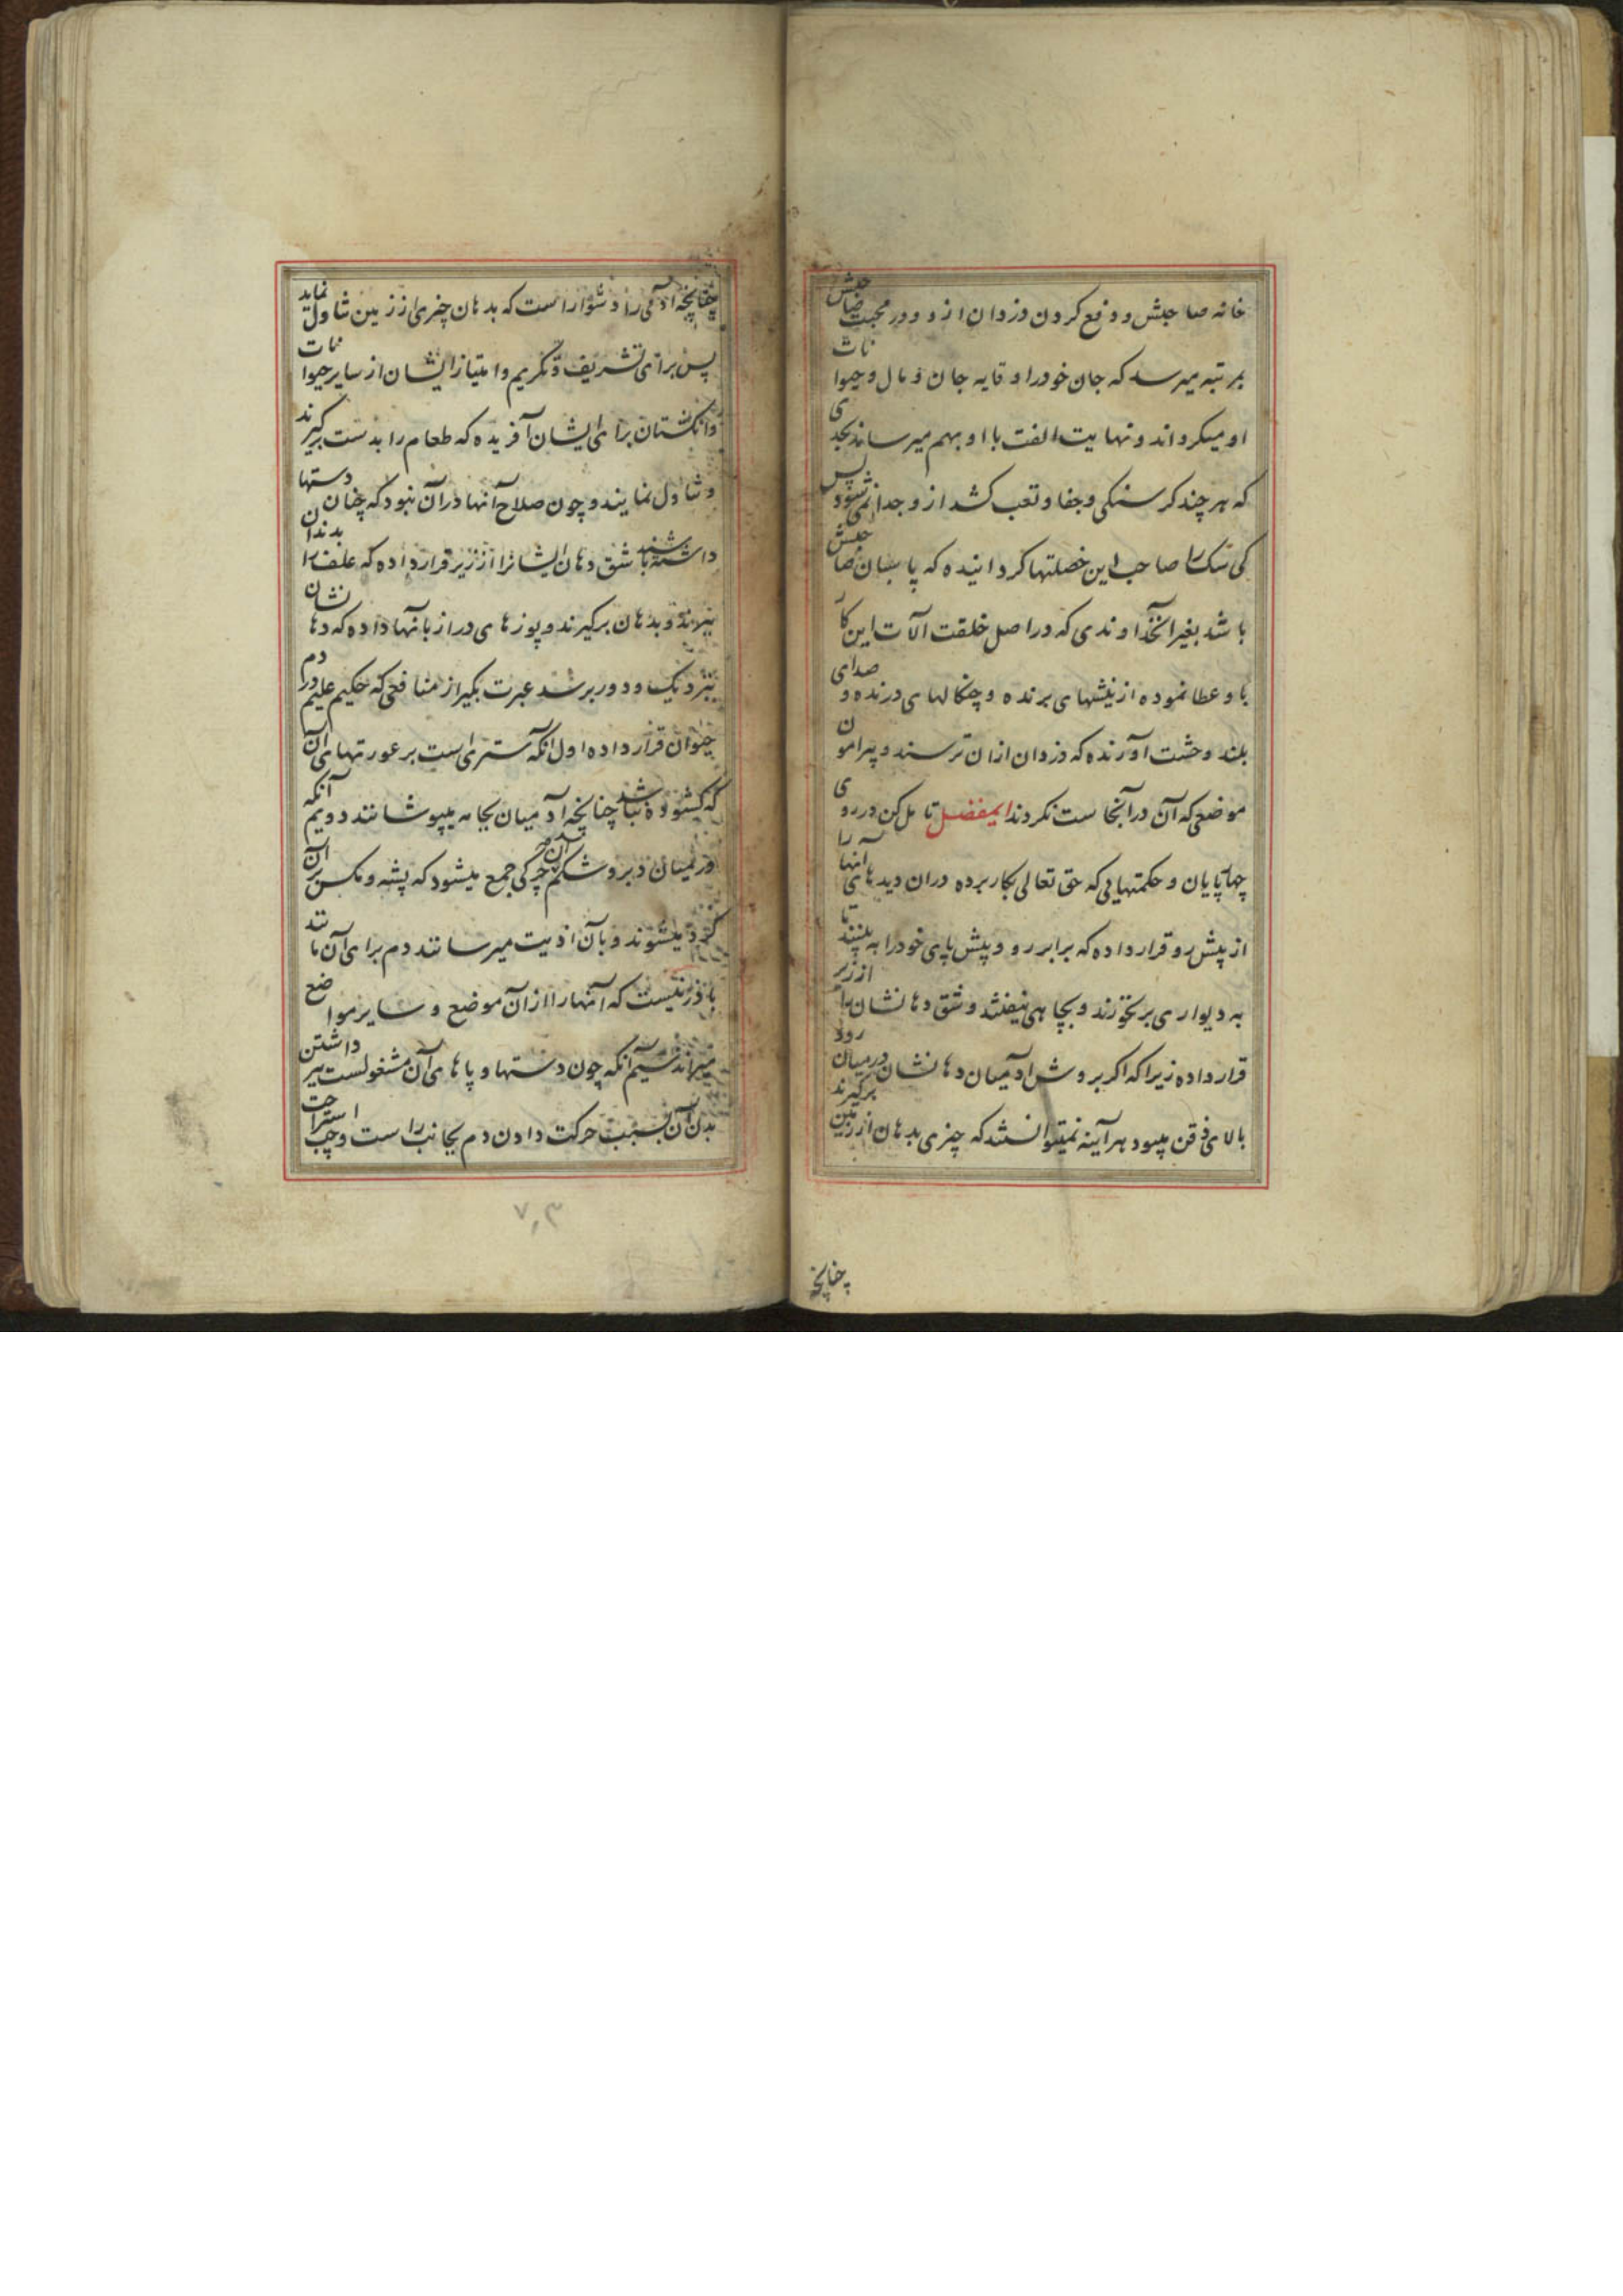 خانه صاحبش و دفع کردن دزدان ازو و در محبت صاحبش
بمرتبه میرسد که جان خود را وقایه جان و مال و حیوانات
او میکرداند و نهایت الفت با او بهم میرساند بحدی
که هر چند کرسنکی و جفا و تعب کشد ازو جدا نمیشود پس
کی سک را صاحب این خصلتها کردانیده که پاسبان صاحبش
باشد بغیر آنخداوندی که در اصل خلقت الات این کار
باو عطا نموده از نیشهای برنده و چنکالهای درنده و صدای
بلند وحشت آورنده که دزدان ازان ترسند و پیرامون
موضعی که آن در آنجاست نکردند ایمفضل تامل کن در روی
چهارپایان و حکمتهایی که حق تعالی بکار برده دران دیدهای انها را
از پیش رو قرار داده که برابر رو و پیش پای خود را به بینند تا
به دیواری بر نخورند و بچاهی نیفتند و شق دهانشان را از زیر
قرار داده زیرا که اکر بروش آدمیان دهانشان در میان رود
بالای ذقن میبود هر آینه نمیتوانستند که چیزی بدهان از زمین برکیرند
چنانچه
چنانچه آدمی را دشوار است که بدهان چیزی از زمین تناول نماید
پس برای تشریف و تکریم و امتیاز ایشان از سایر حیوانات
وانکشتان برای ایشان آفریده که طعام را بدست کیرند
و تناول نمایند و چون صلاح آنها در آن نبود که چنان دستها
داشته باشند شق دهان ایشانرا از زیر قرار داده که علف را بدندان
ببرند و بدهان برکیرند و پوزهای دراز بآنها داده که دهانشان
بنزدیک و دور برسد عبرت بکیر از منافعی که حکیم علیم در دم
حیوان قرار داده اول آنکه ستری است بر عورتهای آن
که کشوده نباشد چنانچه آدمیان بجامه میپوشانند دویم آنکه
در میان دبر و شکم آن چرکی جمع میشود که پشه و مکس بر آن
کرد میشوند و بآن اذیت میرسانند دم برای آن مانند
بادزنیست که آنها را از آن موضع و سایر مواضع
میراند سیم آنکه چون دستها و پاهای آن مشغولست ببرداشتن
بدن آن بسبب حرکت دادن دم بجانب راست و چپ استراحت
۷۰۳